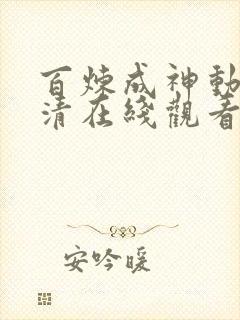 百煉成神動
清在綫觀看
安吟暖